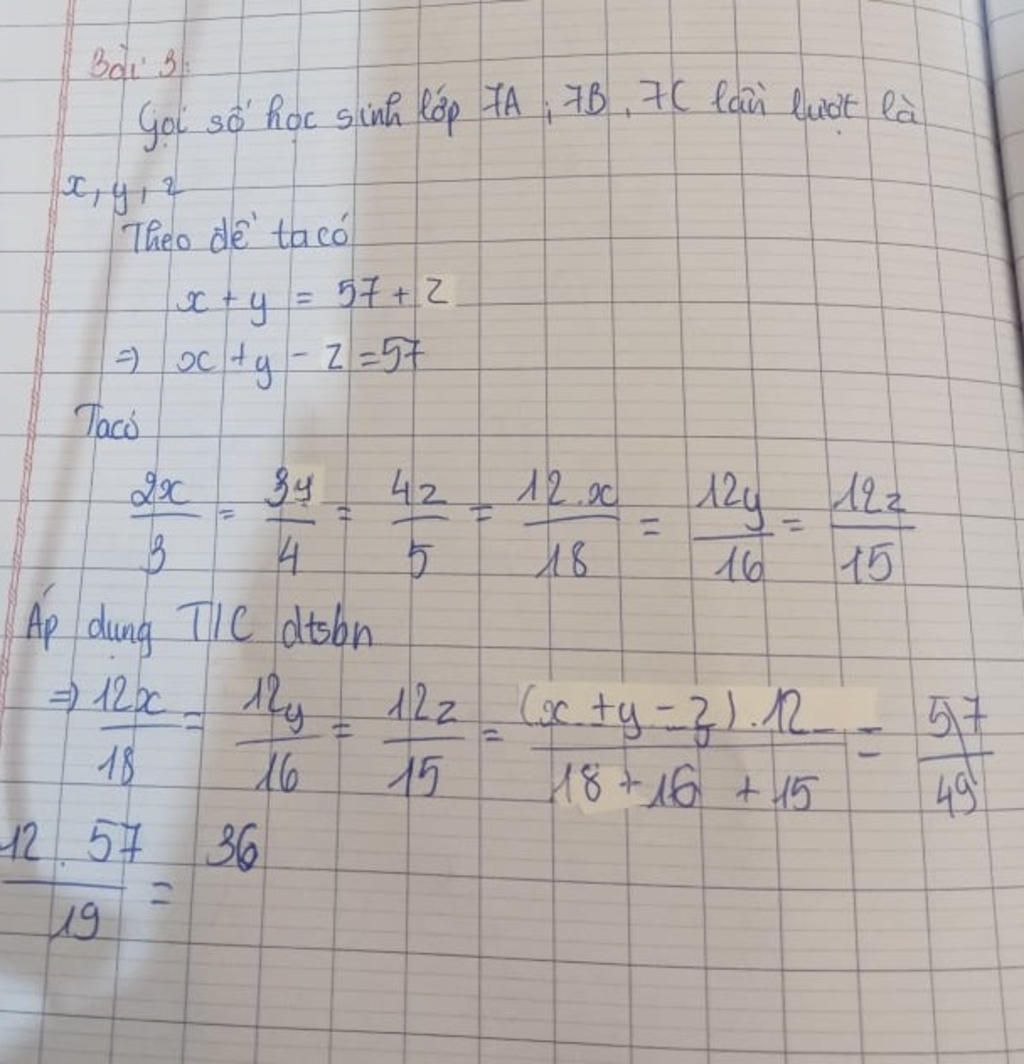 Bài 3:
Gọi số học sinh lớp 7A, 7B, 7C lần lượt là
x, y, z
Theo đề ta có
x + y = 57 + z
=> x + y - z = 57
Ta có
2x/3 = 3y/4 = 4z/5 = 12.x/18 = 12y/16 = 12z/15
Áp dụng T/C dtsbn
=> 12x/18 = 12y/16 = 12z/15 = (x + y - z).12/18 + 16 + 15 = 57/49
12.57/19 = 36